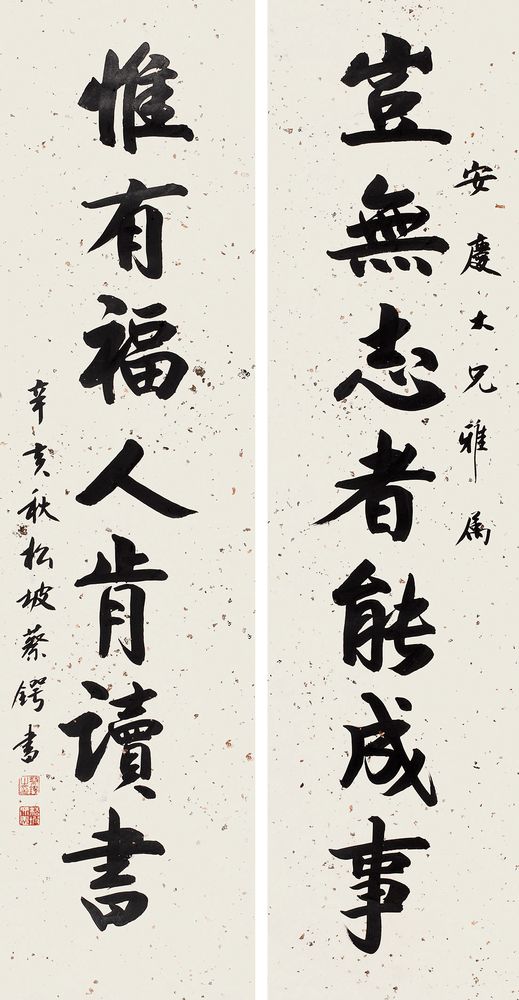 安慶大兄雅属
豈無志者能成事
惟有福人肯讀書
辛亥秋松坡蔡鍔書